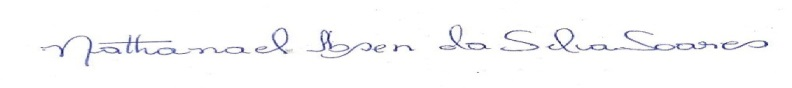 Nathanael Ibsen da Silva Soares